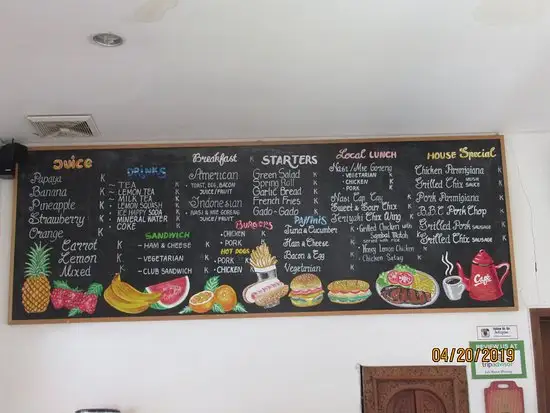 Juice
Papaya K
Banana K
Pineapple K
Strawberry K
Orange K
Carrot K
Lemon K
Mixed K
DRINKS
~ TEA K
~ LEMON TEA K
~ MILK TEA K
~ LEMON SQUASH K
~ ICE HAPPY SODA K
~ MINERAL WATER K
~ COKE K
SANDWICH
- HAM & CHEESE K
- VEGETARIAN K
- CLUB SANDWICH K
Breakfast K
American
TOAST, EGG, BACON
JUICE/FRUIT
Indonesian
NASI & MIE GORENG
JUICE/FRUIT
BURGERS
• CHICKEN K
• PORK K
HOT DOGS K
• PORK K
• CHICKEN K
STARTERS
Green Salad K
Spring Roll K
Garlic Bread K
French Fries K
Gado-Gado K
PANINIS
Tuna & Cucumber K
Ham & Cheese K
Bacon & Egg K
Vegetarian K
Local LUNCH
Nasi/Mie Goreng K
- VEGETARIAN K
- CHICKEN K
- PORK K
Nasi Cap Cay K
Sweet & Sour Chix K
Teriyaki Chix Wing K
• Grilled Chicken with K
Sambal Matah
served with rice
- Honey Lemon Chicken K
- Chicken Satay K
HOUSE Special
Chicken Parmigiana K
Grilled Chix K
SAUCE
Pork Parmigiana K
B.B.Q Pork Chop K
Grilled Pork SAUSAGE K
Grilled Chix SAUSAGE K
Cafe
REVIEW US AT
tripadvisor
04/20/2019